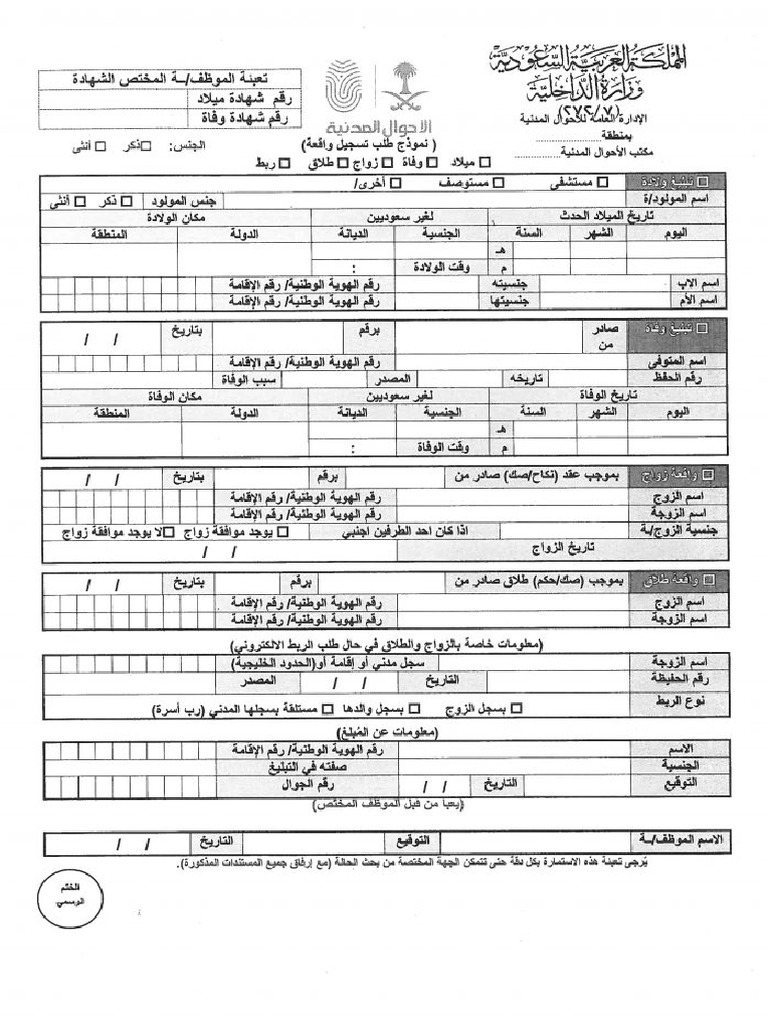 المملكة العربية السعودية
وزارة الداخلية
(٢٧٢/٧)
الإدارة العامة للأحوال المدنية
بمنطقة ..................
مكتب الأحوال المدنية ..................
الأحوال المدنية
تعبئة الموظف/ـة المختص الشهادة
رقم شهادة ميلاد
رقم شهادة وفاة
(نموذج طلب تسجيل واقعة)
الجنس: □ذكر □أنثى
□ ميلاد □ وفاة □ زواج □ طلاق □ ربط
□ تبليغ ولادة □ مستشفى □ مستوصف □ أخرى/
اسم المولود/ة جنس المولود □ ذكر □ أنثى
تاريخ الميلاد الحدث لغير سعوديين مكان الولادة
اليوم الشهر السنة الجنسية الديانة الدولة المنطقة
هـ
م وقت الولادة :
اسم الاب جنسيته رقم الهوية الوطنية/ رقم الإقامة
اسم الأم جنسيتها رقم الهوية الوطنية/ رقم الإقامة
□ تبليغ وفاة صادر من برقم بتاريخ / /
اسم المتوفى رقم الهوية الوطنية/ رقم الإقامة
رقم الحفظ تاريخه المصدر سبب الوفاة
تاريخ الوفاة لغير سعوديين مكان الوفاة
اليوم الشهر السنة الجنسية الديانة الدولة المنطقة
هـ
م وقت الوفاة :
□ واقعة زواج بموجب عقد (نكاح/صك) صادر من برقم بتاريخ / /
اسم الزوج رقم الهوية الوطنية/ رقم الإقامة
اسم الزوجة رقم الهوية الوطنية/ رقم الإقامة
جنسية الزوج/ـة اذا كان احد الطرفين اجنبي □ يوجد موافقة زواج □لا يوجد موافقة زواج
تاريخ الزواج / /
□ واقعة طلاق بموجب (صك/حكم) طلاق صادر من برقم بتاريخ / /
اسم الزوج رقم الهوية الوطنية/ رقم الإقامة
اسم الزوجة رقم الهوية الوطنية/ رقم الإقامة
(معلومات خاصة بالزواج والطلاق في حال طلب الربط الالكتروني)
اسم الزوجة سجل مدني أو إقامة أو(الحدود الخليجية)
رقم الحفيظة التاريخ / / المصدر
نوع الربط □ بسجل الزوج □ بسجل والدها □ مستقلة بسجلها المدني (رب أسرة)
(معلومات عن المُبلغ)
الاسم رقم الهوية الوطنية/ رقم الإقامة
الجنسية صفته في التبليغ
التوقيع التاريخ / / رقم الجوال
(يعبا من قبل الموظف المختص)
الاسم الموظف/ـة التوقيع التاريخ / /
يُرجى تعبئة هذه الاستمارة بكل دقة حتى تتمكن الجهة المختصة من بحث الحالة (مع إرفاق جميع المستندات المذكورة).
الختم
الرسمي